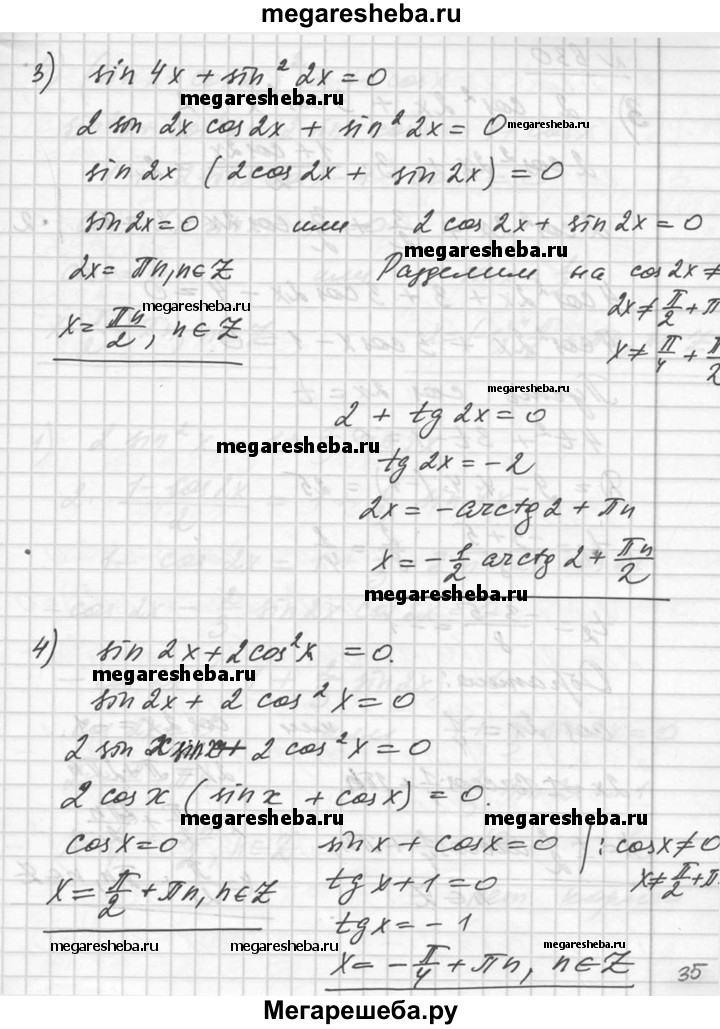 megaresheba.ru
3) sin 4x + sin² 2x = 0
megaresheba.ru
2 sin 2x cos 2x + sin² 2x = 0 megaresheba.ru
sin 2x (2cos 2x + sin 2x) = 0
sin 2x = 0 или 2 cos 2x + sin 2x = 0
megaresheba.ru
2x = πn, n∈Z Разделим на cos 2x ≠
megaresheba.ru 2x ≠ π/2 + π
x = πn/2, n∈Z x ≠ π/4 + π/2
megaresheba.ru
2 + tg 2x = 0
megaresheba.ru
tg 2x = -2
2x = -arctg 2 + πn
x = -1/2 arctg 2 + πn/2
megaresheba.ru
4) sin 2x + 2cos²x = 0.
megaresheba.ru
sin 2x + 2 cos² x = 0
2 sin 2 cos² x = 0
2 cos x (sin x + cos x) = 0.
megaresheba.ru megaresheba.ru
cos x = 0 sin x + cos x = 0 /: cos x ≠ 0
x = π/2 + πn, n∈Z tg x + 1 = 0 x ≠ π/2 + π
tg x = -1
megaresheba.ru megaresheba.ru megaresheba.ru
x = -π/4 + πn, n∈Z
35
Мегарешеба.ру